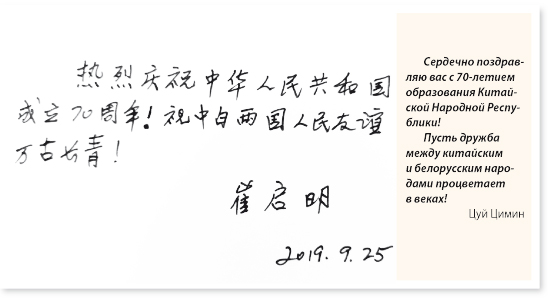 热烈庆祝中华人民共和国
成立70周年!祝中白两国人民友谊
万古长青!
崔启明
2019.9.25
Сердечно поздрав-
ляю вас с 70-летием
образования Китай-
ской Народной Респу-
блики!
Пусть дружба
между китайским
и белорусским наро-
дами процветает
в веках!
Цуй Цимин